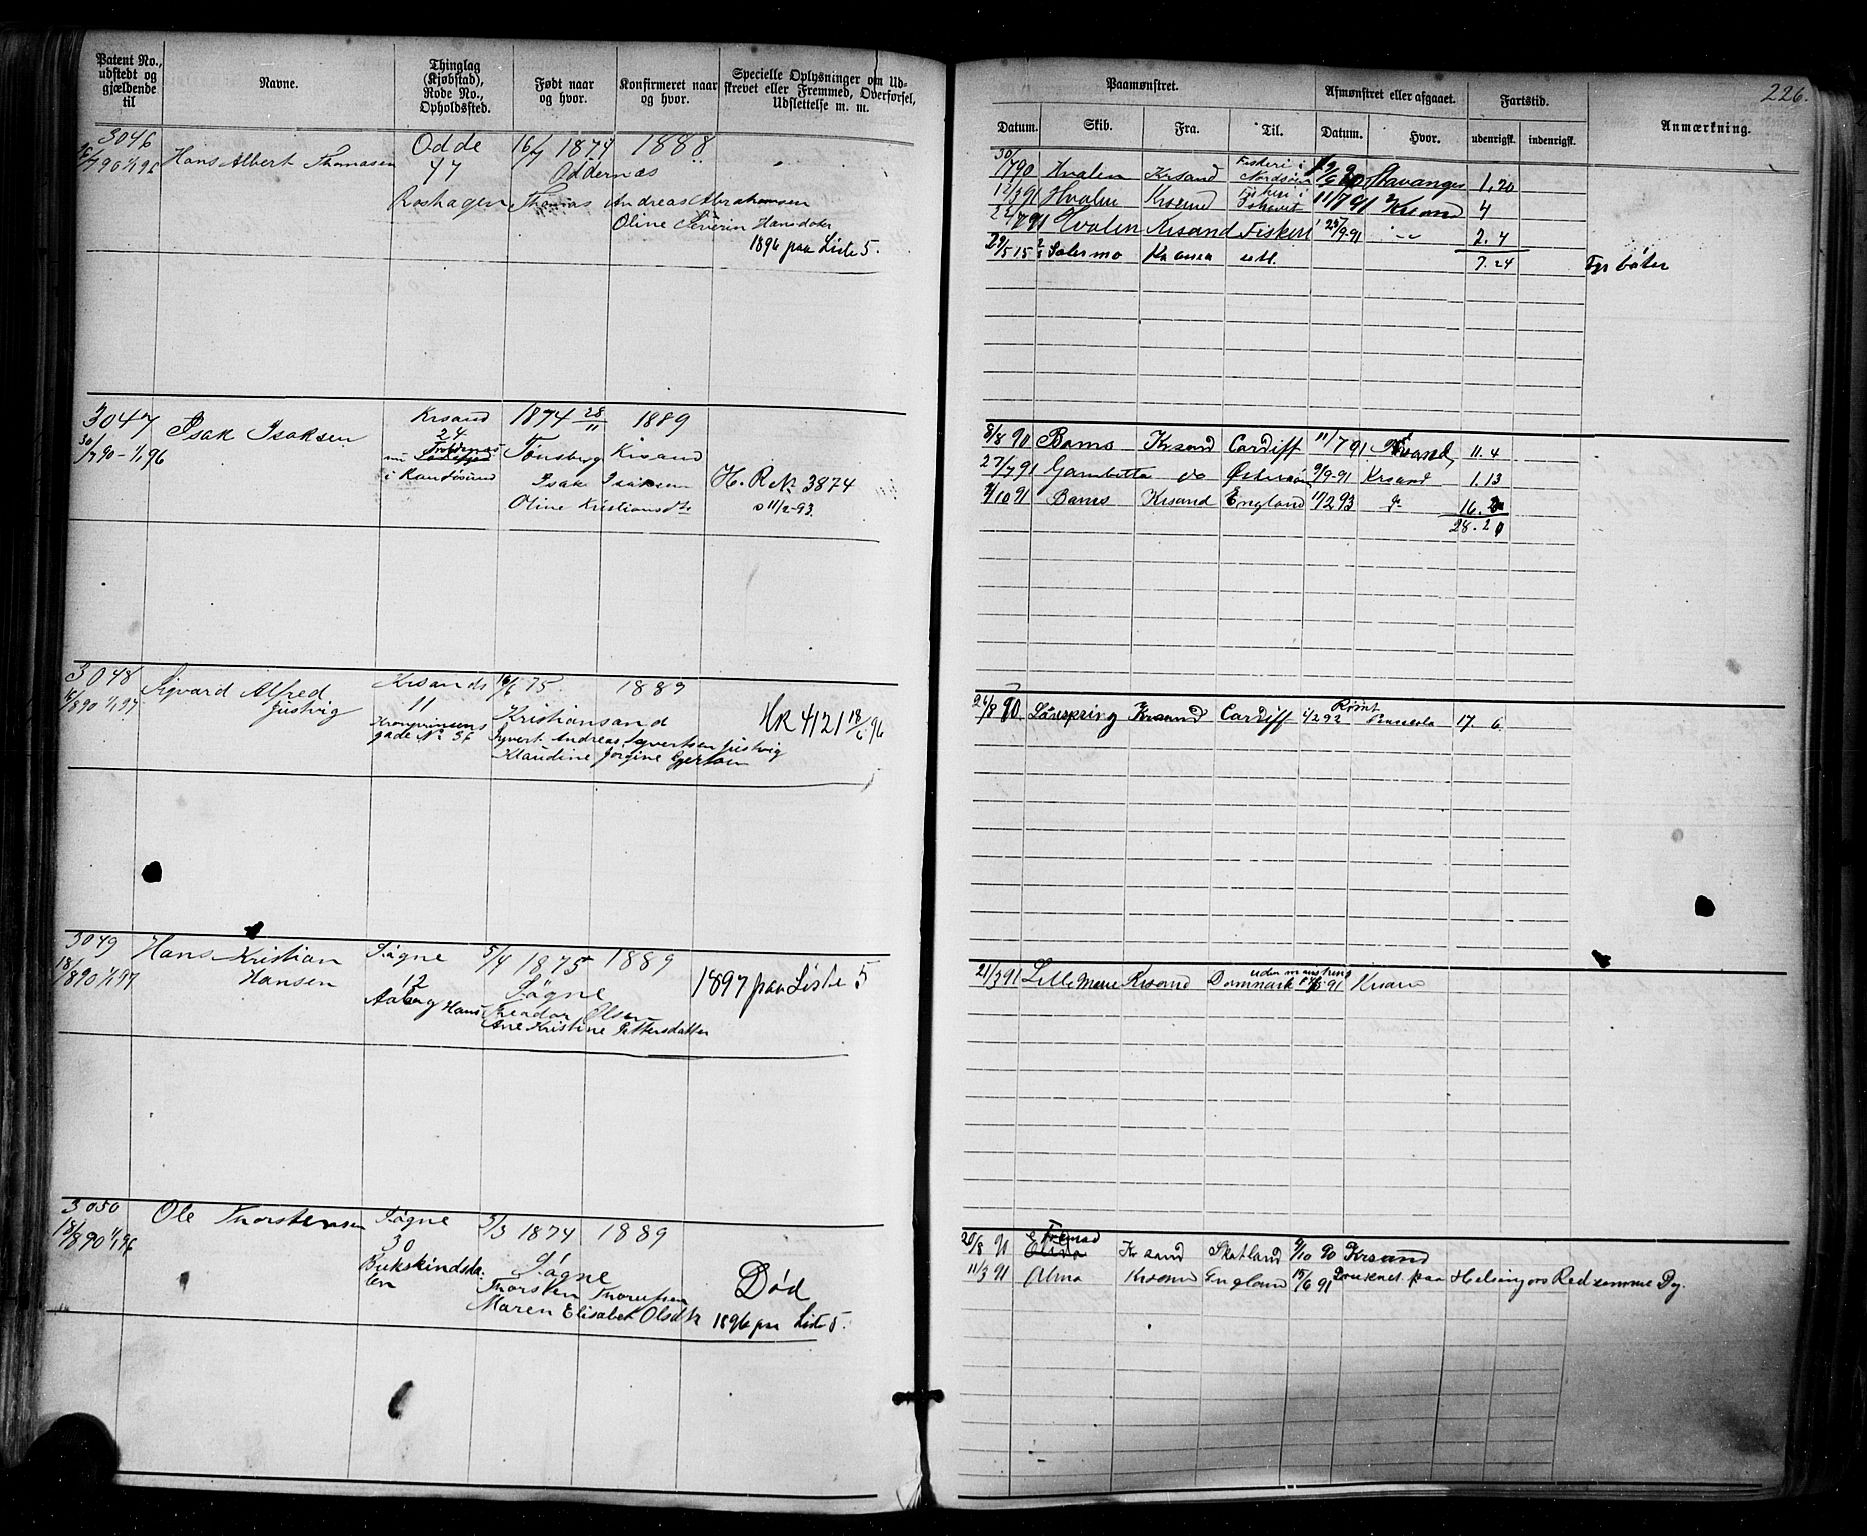 Patent No.,
udstedt og
gjældende
til
Navne.
Thinglag
(Kjøbstad),
Rode No.,
Opholdssted.
Født naar
og hvor.
Konfirmeret naar
og hvor.
Specielle Oplysninger om Ud-
skrevet eller Fremmed, Overførsel,
Udslettelse m. m.
3046
Hans Albert Thomasen
Odde
47
Roshagen
16/7 1874
Oddernæs
1888
Thomas Andreas Abrahamsen
Oline Severin Hansdater
1896 paa Liste 5.
3047
30/7 90 - 1/1 96
Isak Isaksen
Krsand
24
i Randøsund
1874 28/11
Tønsberg
1889
Krsand
Isak Isaksen
Oline Kristiansdtr
H. R. No 3874
11/2-93
3048
16/8 90 1/1 97
Sigvard Alfred
Justvig
Krsands
11
Kronprinsens
gade No 56
16/6 75.
1889
Kristiansand
Syvert Andreas Syvertsen Justvig
Klaudine Jørgine Gjertsen
HR 4121 18/6 96
3049
18/8 90 1/1 97
Hans Kristian
Hansen
Søgne
12
Aaberg
5/4 1875
Søgne
1889
Hans Theodor Olsen
Ane Kristine Pettersdatter
1897 paa Liste 5
3050
18/8 90 1/1 96
Ole Thorstensen
Søgne
30
Bukskindsda-
len
5/3 1874
Søgne
1889
Thorsten
Maren Elisabet Olsdtr
Død
1896 paa Liste 5.
226.
Paamønstret.
Afmønstret eller afgaaet.
Fartstid.
Anmærkning.
Datum.
Skib.
Fra.
Til.
Datum.
Hvor.
udenrigsk.
indenrigsk.
30/7 90 Hvalen Krsand Fiskeri i Nordsøen Stavanger 1,20
12/3 91 Hvalen Krsand Fiskeri i 11/7 91 Krsand 4
22/7 91 Hvalen Krsand Fiskeri 24/9-91 2.4
29/5 15 Salermo 7.24
8/8 90 Bams Krsand Cardiff 11/7 91 Krsand, 11.4
27/7 91 Gambetta do Østersøen 9/9-91 Krsand 1.13
91 Bams Krsand England 11/2 93 16.
28.20
24/8 90 Krsand Cardiff 1/2 92 Rømt 17. 6.
21/3 91 Lille Marie Krsand Danmark uden mønstring 91 Krsand
20/8 91 Fremad Krsand Skotland 9/10 90 Krsand
11/3 91 Alma Krsand England 15/6 91 Druknet paa Helsingørs Red samme Dg.